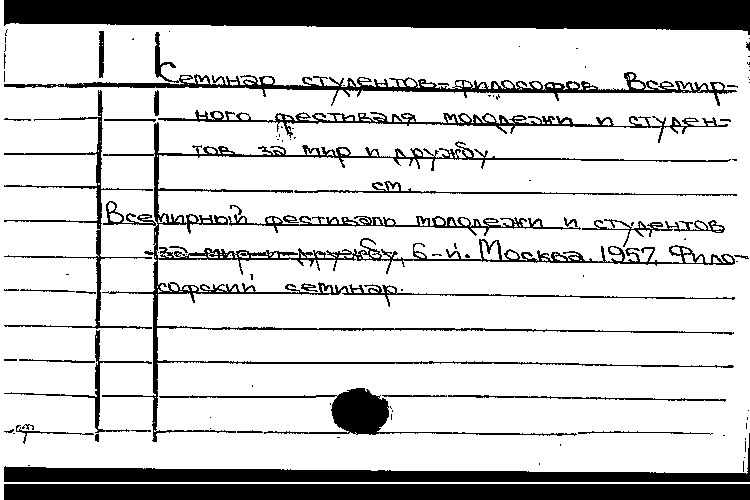 Семинар студентов-философов Всемир-
ного фестиваля молодежи и студен-
тов за мир и дружбу.
см.
Всемирный фестиваль молодежи и студентов
за мир и дружбу, 6-й. Москва. 1957. Фило-
софский семинар.